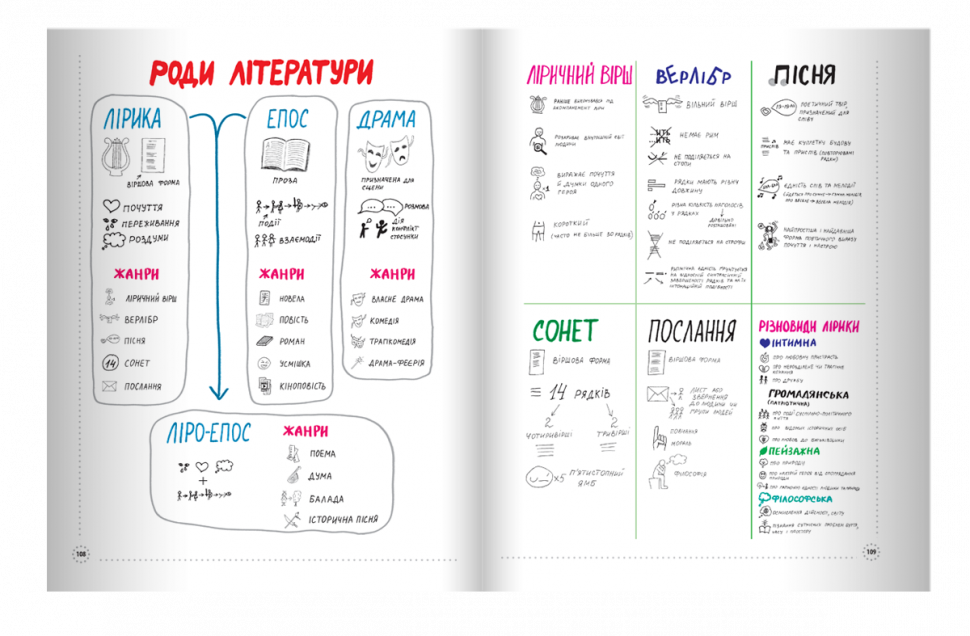 РОДИ ЛІТЕРАТУРИ
ЛІРИКА
ВІРШОВА ФОРМА
ПОЧУТТЯ
ПЕРЕЖИВАННЯ
РОЗДУМИ
ЖАНРИ
ЛІРИЧНИЙ ВІРШ
ВЕРЛІБР
ПІСНЯ
14 СОНЕТ
ПОСЛАННЯ
ЕПОС
ПРОЗА
ПОДІЇ
ВЗАЄМОДІЇ
ЖАНРИ
НОВЕЛА
ПОВІСТЬ
РОМАН
УСМІШКА
КІНОПОВІСТЬ
ДРАМА
ПРИЗНАЧЕНА ДЛЯ
СЦЕНИ
РОЗМОВА
ДІЯ
КОНФЛІКТ
СТОСУНКИ
ЖАНРИ
ВЛАСНЕ ДРАМА
КОМЕДІЯ
ТРАГІКОМЕДІЯ
ДРАМА-ФЕЄРІЯ
ЛІРО-ЕПОС
+
ЖАНРИ
ПОЕМА
ДУМА
БАЛАДА
ІСТОРИЧНА ПІСНЯ
108
ЛІРИЧНИЙ ВІРШ
РАНІШЕ ВИКОНУВАВСЯ ПІД
АКОМПАНЕМЕНТ ЛІРИ
ЛЮДИНИ
ВИРАЖАЄ ПОЧУТТЯ
Й ДУМКИ ОДНОГО
ГЕРОЯ
×1
КОРОТКИЙ
(ЧАСТО НЕ БІЛЬШЕ 30 РЯДКІВ)
ВЕРЛІБР
ВІЛЬНИЙ ВІРШ
НЕМАЄ РИМ
НЕ ПОДІЛЯЄТЬСЯ НА
СТОПИ
РЯДКИ МАЮТЬ РІЗНУ
ДОВЖИНУ
РІЗНА КІЛЬКІСТЬ НАГОЛОСІВ
У РЯДКАХ
НЕ ПОДІЛЯЄТЬСЯ НА СТРОФИ
ПІСНЯ
ПОЕТИЧНИЙ ТВІР,
ПРИЗНАЧЕНИЙ ДЛЯ
СПІВУ
МАЄ КУПЛЕТНУ БУДОВУ
ТА ПРИСПІВ (ПОВТОРЮВАНІ
РЯДКИ)
ПРИСПІВ
ЄДНІСТЬ СЛІВ ТА МЕЛОДІЇ
НАЙПРОСТІША І НАЙДАВНІША
ФОРМА ПОЕТИЧНОГО ВИРАЗУ
ПОЧУТТЯ І НАСТРОЮ
СОНЕТ
ВІРШОВА ФОРМА
14 РЯДКІВ
2 2
ЧОТИРИВІРШІ ТРИВІРШІ
×5 П'ЯТИСТОПНИЙ
ЯМБ
ПОСЛАННЯ
ВІРШОВА ФОРМА
ЛИСТ АБО
ЗВЕРНЕННЯ
ДО ЛЮДИНИ ЧИ
ГРУПИ ЛЮДЕЙ
ПОВЧАННЯ
МОРАЛЬ
ФІЛОСОФІЯ
РІЗНОВИДИ ЛІРИКИ
ІНТИМНА
ПРО ЛЮБОВНУ ПРИСТРАСТЬ
ПРО ДРУЖБУ
ГРОМАДЯНСЬКА
(ПАТРІОТИЧНА)
ПРО ЛЮБОВ ДО БАТЬКІВЩИНИ
ПЕЙЗАЖНА
ПРО ПРИРОДУ
ФІЛОСОФСЬКА
109